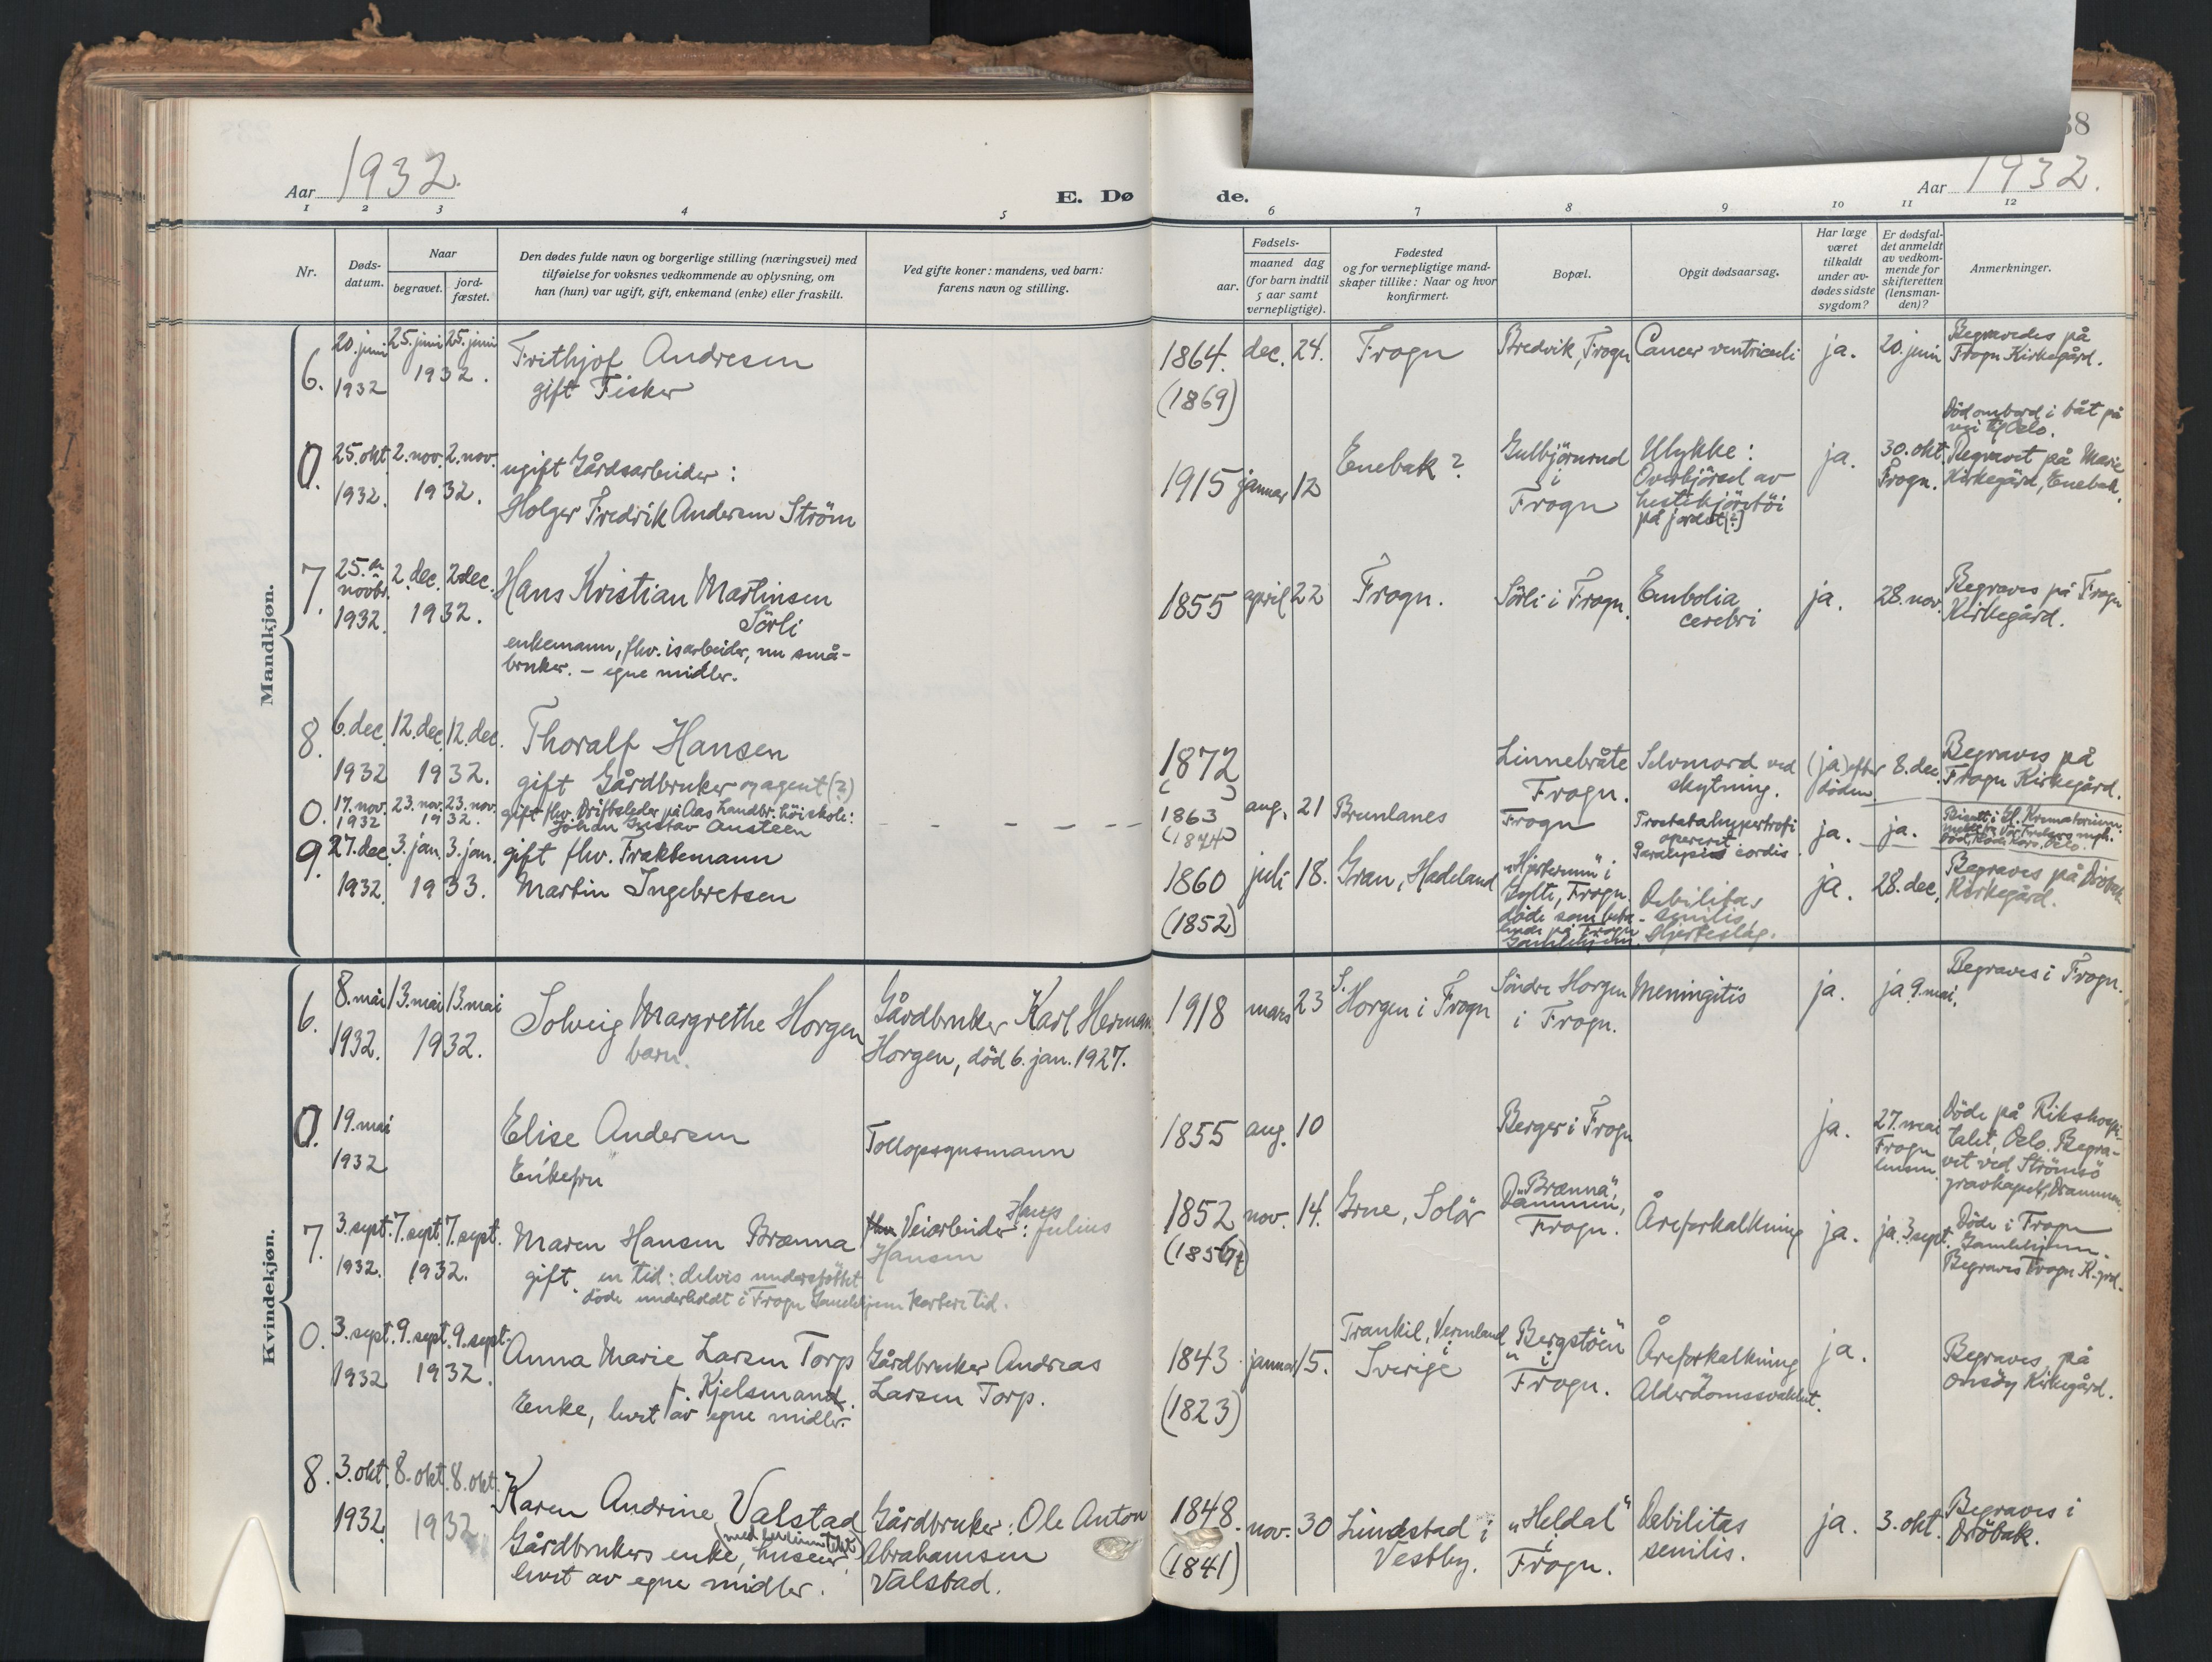 38
Aar 1932.
E. Dø
de.
Aar 1932.
1 2 3 4 5 6 7 8 9 10 11 12
Nr.
Døds-
datum.
Naar
begravet.
jord-
fæstet.
Den dødes fulde navn og borgerlige stilling (næringsvei) med
tilføielse for voksnes vedkommende av oplysning, om
han (hun) var ugift, gift, enkemand (enke) eller fraskilt.
Ved gifte koner: mandens, ved barn:
farens navn og stilling.
Fødsels-
aar.
maaned dag
(for barn indtil
5 aar samt
vernepligtige).
Fødested
og for vernepligtige mand-
skaper tillike: Naar og hvor
konfirmert.
Bopæl.
Opgit dødsaarsag.
Har læge
været
tilkaldt
under av-
dødes sidste
sygdom?
Er dødsfal-
det anmeldt
av vedkom-
mende for
skifteretten
(lensman-
den)?
Anmerkninger.
Mandkjøn.
6.
20. juni
1932
25. juni 25. juni
1932.
Frithjof Andresen
gift Fisker
1864.
(1869)
dec. 24.
Frogn
Bredvik, Frogn
Cancer ventriculi
ja.
20. juni
Begravedes på
Frogn Kirkegård.
0.
25. okt
1932.
2. nov. 2. nov.
1932.
ugift Gårdsarbeider:
Holger Fredrik Andersen Ström
1915 januar 12
Enebak?
Gulbjörnrud
i
Frogn
Ulykke:
Overkjörsel av
hestekjöretöi
på jordet (?)
ja.
30. okt.
Frogn.
Död ombord i båt på
vei til Oslo.
Begravet på Marie
Kirkegård, Enebak.
7.
25. de
novbr.
1932.
2. dec. 2 dec.
1932.
Hans Kristian Martinsen
Sörli
enkemann, fhv. isarbeider, nu små-
bruker. – egne midler.
1855 april 22
Frogn.
Sörli i Frogn.
Embolia
cerebri
ja.
28. nov.
Begraves på Frogn
Kirkegård.
8.
6. dec.
1932
12. dec. 12. dec.
1932.
Thoralf Hansen
gift Gårdbruker og agent (?)
1872
( )
Linnebråte
Frogn.
Selvmord ved
skytning.
(ja) efter
döden
8. dec.
Begraves på
Frogn Kirkegård.
0.
17. nov.
1932
23. nov. 23. nov.
1932.
gift fhv. Driftsleder på Aas Landbr. höiskole:
Johan Gustav Austeen
1863
(1874)
aug. 21 Brunlanes
Frogn
Prostatahypertrofi
operert.
Paralysis cordis
ja. ja.
9.
27. dec.
1932.
3. jan. 3. jan.
1933.
gift fhv. Traktemann
Martin Ingebretsen
1860
(1852)
juli 18. Gran, Hadeland
"Hjerterum" i
Gylte, Frogn.
döde som beta-
lende på Frogn
Gamlehjem.
Debilitas
senilis,
Hjerteslag.
ja.
28. dec.
Begraves på Dröbak
Kirkegård.
Kvindekjøn.
6.
8. mai
1932.
13. mai 13. mai
1932.
Solveig Margrethe Horgen
barn.
Gårdbruker Karl Herman
Horgen, död 6. jan. 1927.
1918 mars 23
S.
Horgen i Frogn
Söndre Horgen
i Frogn.
Meningitis
ja.
ja 9. mai.
Begraves i Frogn.
0.
19. mai
1932
Elise Andersen
Enkefru
Tollopsynsmann
1855 aug. 10
Berger i Frogn
ja.
27. mai
Frogn
lensm.
Döde på Rikshospi-
talet, Oslo. Begra-
vet ved Strömsö
gravkapel, Drammen.
7.
3. sept.
1932.
7. sept. 7. sept.
1932.
Maren Hansen Brænna
gift. en tid: delvis understöttet
döde underholdt i Frogn Gamlehjem kortere tid.
fhv. Veiarbeider: Hans Julius
Hansen
1852
nov. 14.
Grue, Solör
"Brænna",
Dammen,
Frogn.
Åreforkalkning
ja.
ja. 3. sept.
Döde i Frogn
Gamlehjem.
Begraves Frogn K.-grd.
0.
3. sept.
1932
9. sept. 9. sept.
1932.
Anna Marie Larsen Torp
f. Kjelsmand.
Enke, levet av egne midler.
Gårdbruker Andreas
Larsen Torp.
1843
(1823)
januar 15.
Trankil, Vermland
i
Sverige
"Bergstöen"
i
Frogn.
Åreforkalkning
Alderdomssvakhet.
ja.
Begraves på
Onsöy Kirkegård.
8.
3. okt.
1932
8. okt. 8. okt.
1932.
Karen Andrine Valstad
Gårdbrukers enke, huseier,
levet av egne midler.
Gårdbruker: Ole Anton
Abrahamsen
Valstad.
1848.
(1841)
nov. 30
Lindstad i
Vestby.
"Heldal"
i
Frogn.
Debilitas
senilis.
ja.
3. okt.
Begraves i
Dröbak.